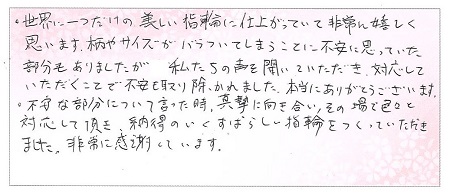 ・世界に一つだけの美しい指輪に仕上がっていて非常に嬉しく
思います。柄やサイズがバラついてしまうことに不安に思っていた
部分もありましたが 私たちの声を聞いていただき、対応して
いただくことで不安も取り除かれました。本当にありがとうございます。
・不安な部分について言った時、真摯に向き合い、その場で色々と
対応して頂き、納得のいくすばらしい指輪をつくっていただき
ました。非常に感謝しています。